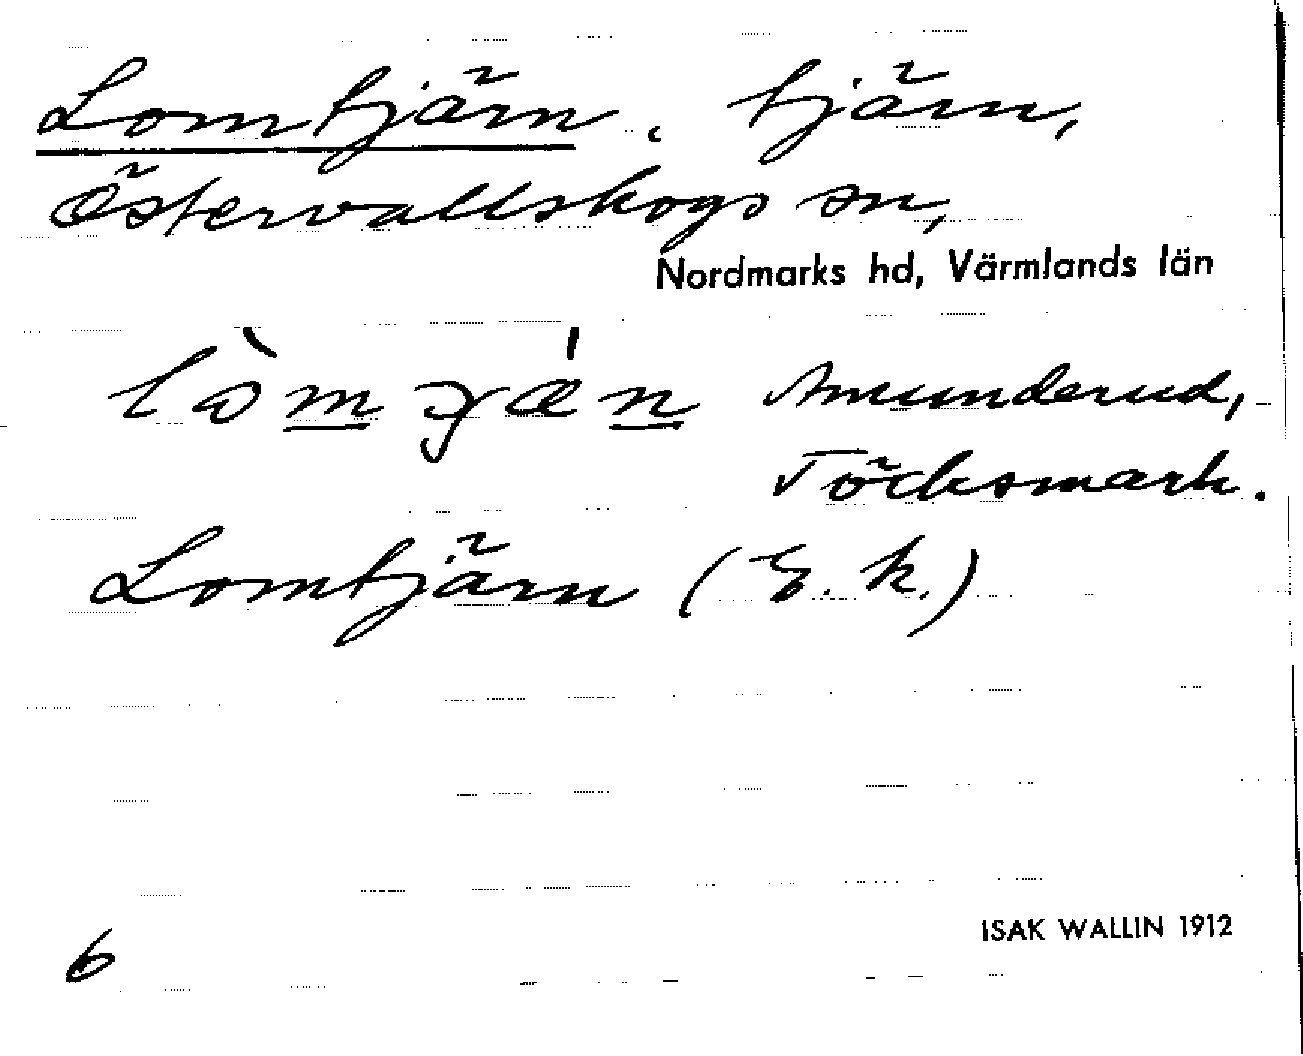 Lomtjärn, tjärn,
Östervallskogs sn,
Nordmarks hd, Värmlands län
lòmjæ̀n Amunderud,
Töcksmark.
Lomtjärn (E. k.)
6
ISAK WALLIN 1912